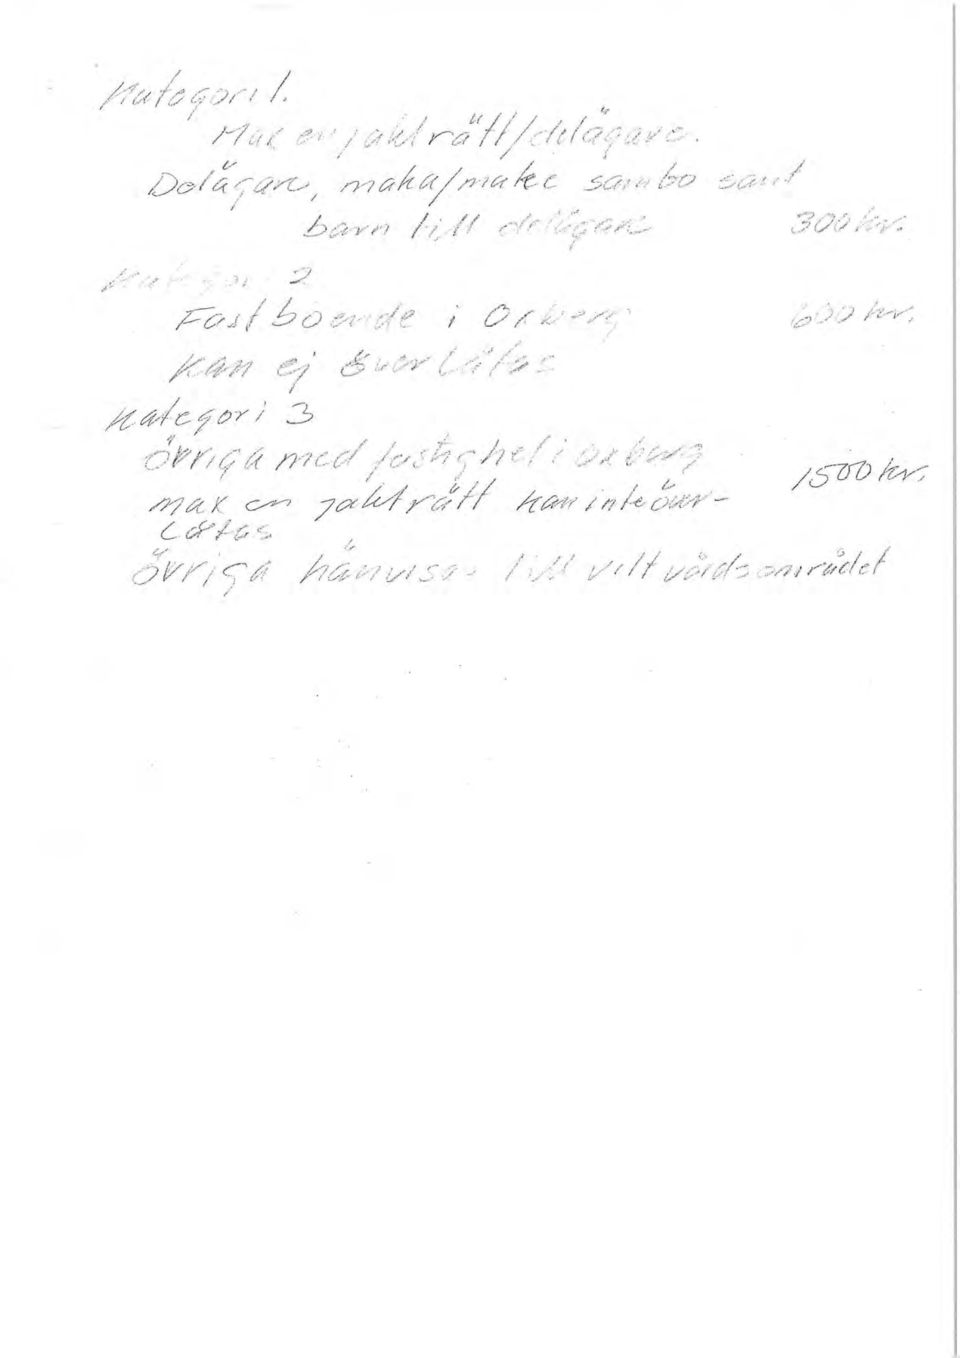 Kategori 1.
Max en jakträtt/delägare.
Delägare, maka/make sambo samt
barn till delägare 300 kr.
Kategori 2
Fastboende i Oxberg 600 kr.
Kan ej överlåtas
Kategori 3
Övriga med fastighet i Oxberg
max en jakträtt kan inte över- 1500 kr.
låtas
Övriga hänvisas till viltvårdsområdet